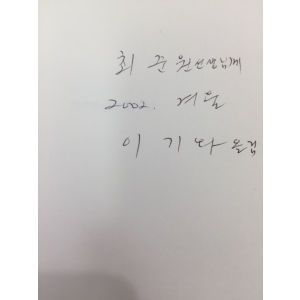 최 준 원 선생님께
2002. 겨울
이 기 타 올림